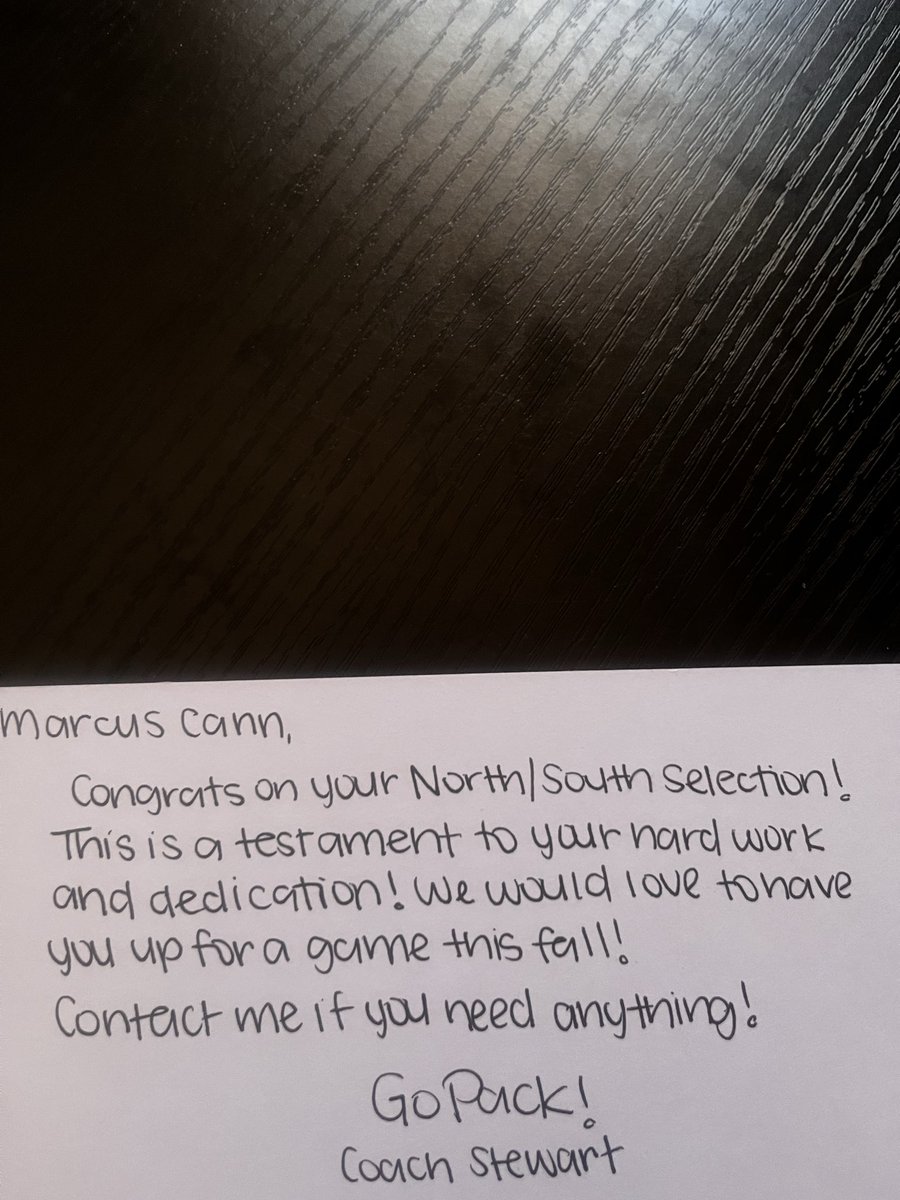 Marcus Cann,
Congrats on your North/South Selection!
This is a testament to your hard work
and dedication! We would love to have
you up for a game this fall!
Contact me if you need anything!
Go Pack!
Coach Stewart